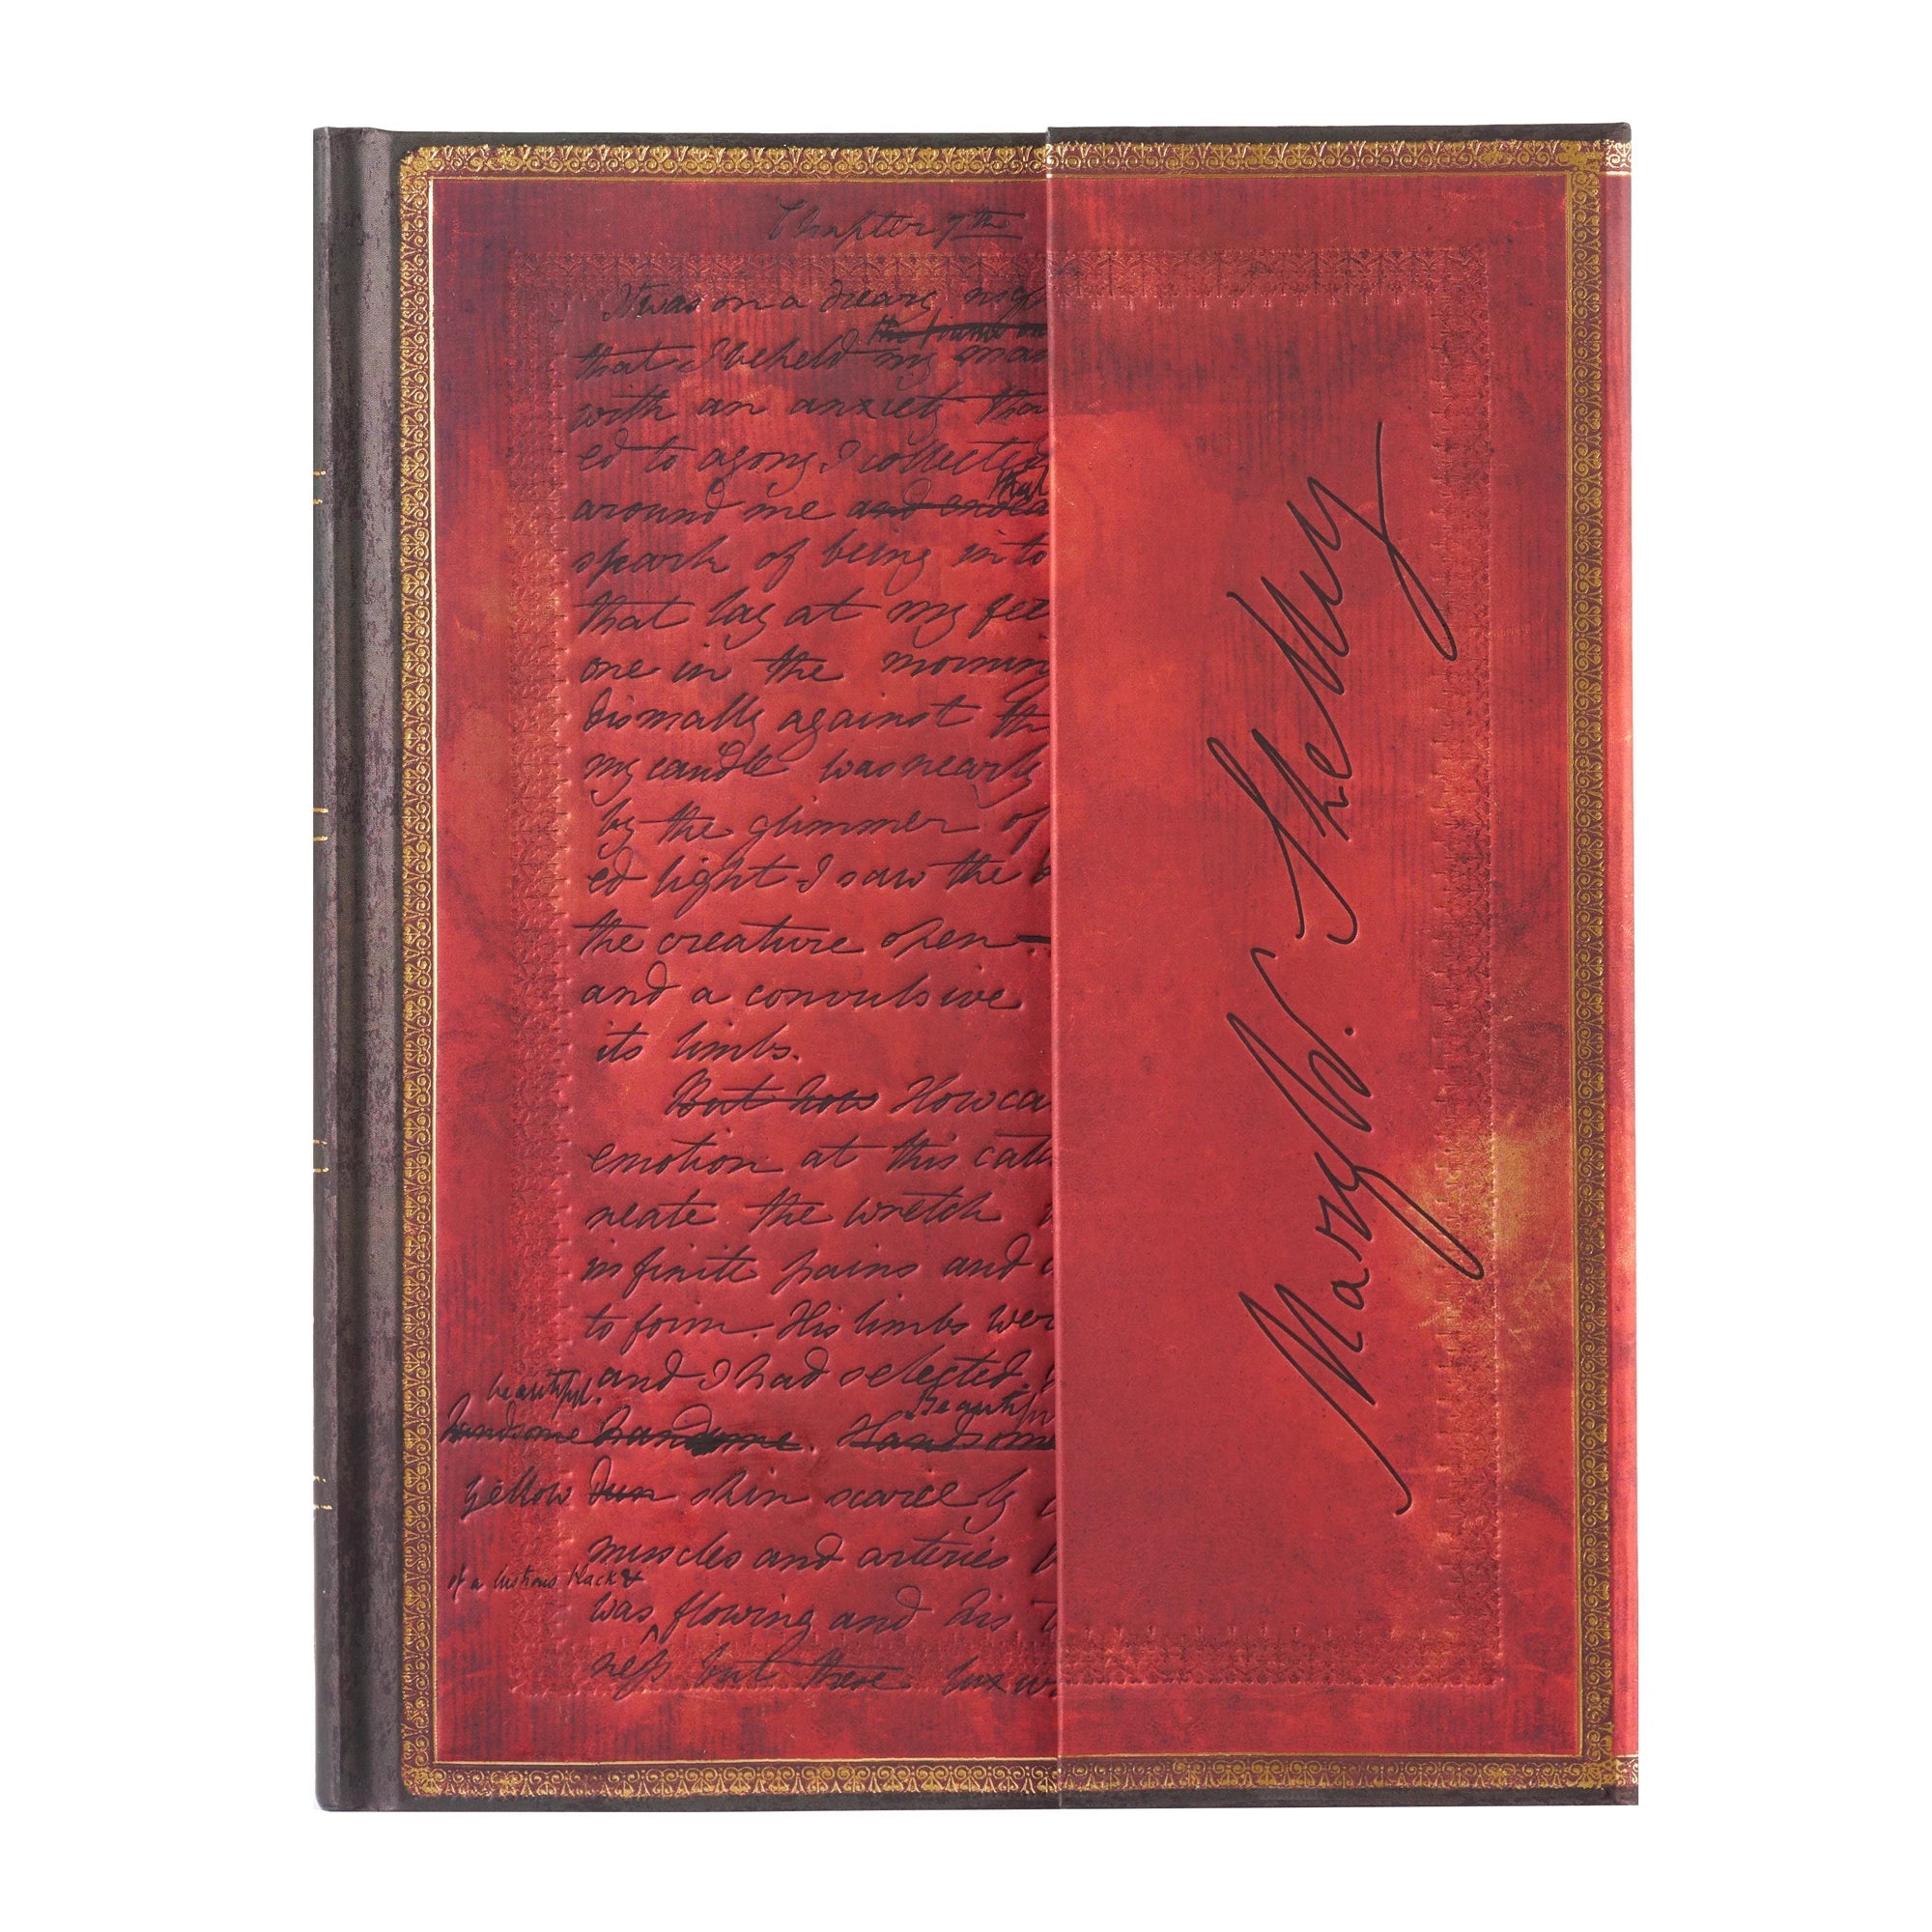 Chapter 7th
It was on a dreary nigh
the frame on
that I beheld my man
with an anxiety that
ed to agony I collected
that
around me and endea
spark of being into
that lay at my fee
one in the mornin
dismally against th
my candle was nearly
by the glimmer of
ed light I saw the
the creature open
and a convulsive
its limbs.
But how How ca
emotion at this cat
neate the wretch
infinite pains and
to form. His limbs wer
and I had selected
beautiful. Beautifu
handsome handsome. Handsome
yellow dun skin scarcely
muscles and arteries
of a lustrous black &
was flowing and his
ness but these luxu
Mary W. Shelley